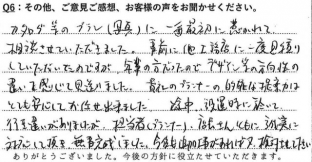 Q6:その他、ご意見ご感想、お客様の声をお聞かせください。
カタログ等のプラン(図面)に一番最初に惹かれて
相談させていただきました。事前に他工務店に一度見積り
していただいたのですが、今事の方だったのでデザイン等の方向性の
違いを感じて見送りました。貴社のプランナーの的確な提案力は
とても安心してお任せ出来ました。途中、設運時に於いて
行き違いがありましたが、担当者(プランナー)、店長さんともに誠実に
対応して頂き無事完成しました。今後も何か有れば
ありがとうございました。今後の方針に役立たせていただきます。